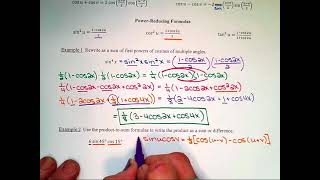 cos u + cos v = 2 cos(u+v/2)cos(u-v/2) cos u - cos v = -2 sin(u+v/2)sin(u-v/2)
Power-Reducing Formulas
sin² u = 1-cos2u/2 cos² u = 1+cos2u/2 tan² u = 1-cos2u/1+cos2u
Example 1 Rewrite as a sum of first powers of cosines of multiple angles.
sin⁴ x = sin²x sin²x = (1-cos2x/2)(1-cos2x/2)
½(1-cos2x)·½(1-cos2x) = ¼(1-cos2x)(1-cos2x)
¼(1-cos2x-cos2x+cos²2x) = ¼(1-2cos2x+cos²2x)
¼(1-2cos2x+½(1+cos4x)) = ⅛(2-4cos2x+1+cos4x)
= ⅛(3-4cos2x+cos4x)
Example 2 Use the product-to-sum formulas to write the product as a sum or difference.
6 sin 45° cos 15° sinucosv = ½[cos(u-v) - cos(u+v)]